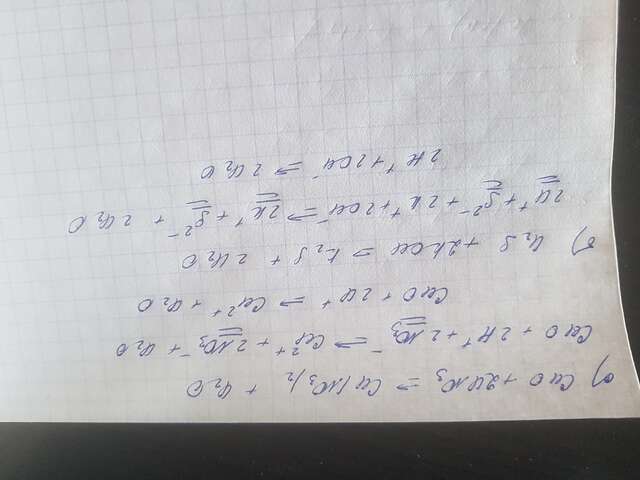 а) CuO + 2HNO₃ = Cu(NO₃)₂ + H₂O
CuO + 2H⁺ + 2NO₃⁻ = Cu²⁺ + 2NO₃⁻ + H₂O
CuO + 2H⁺ = Cu²⁺ + H₂O
б) H₂S + 2KOH = K₂S + 2H₂O
2H⁺ + S²⁻ + 2K⁺ + 2OH⁻ = 2K⁺ + S²⁻ + 2H₂O
2H⁺ + 2OH⁻ = 2H₂O